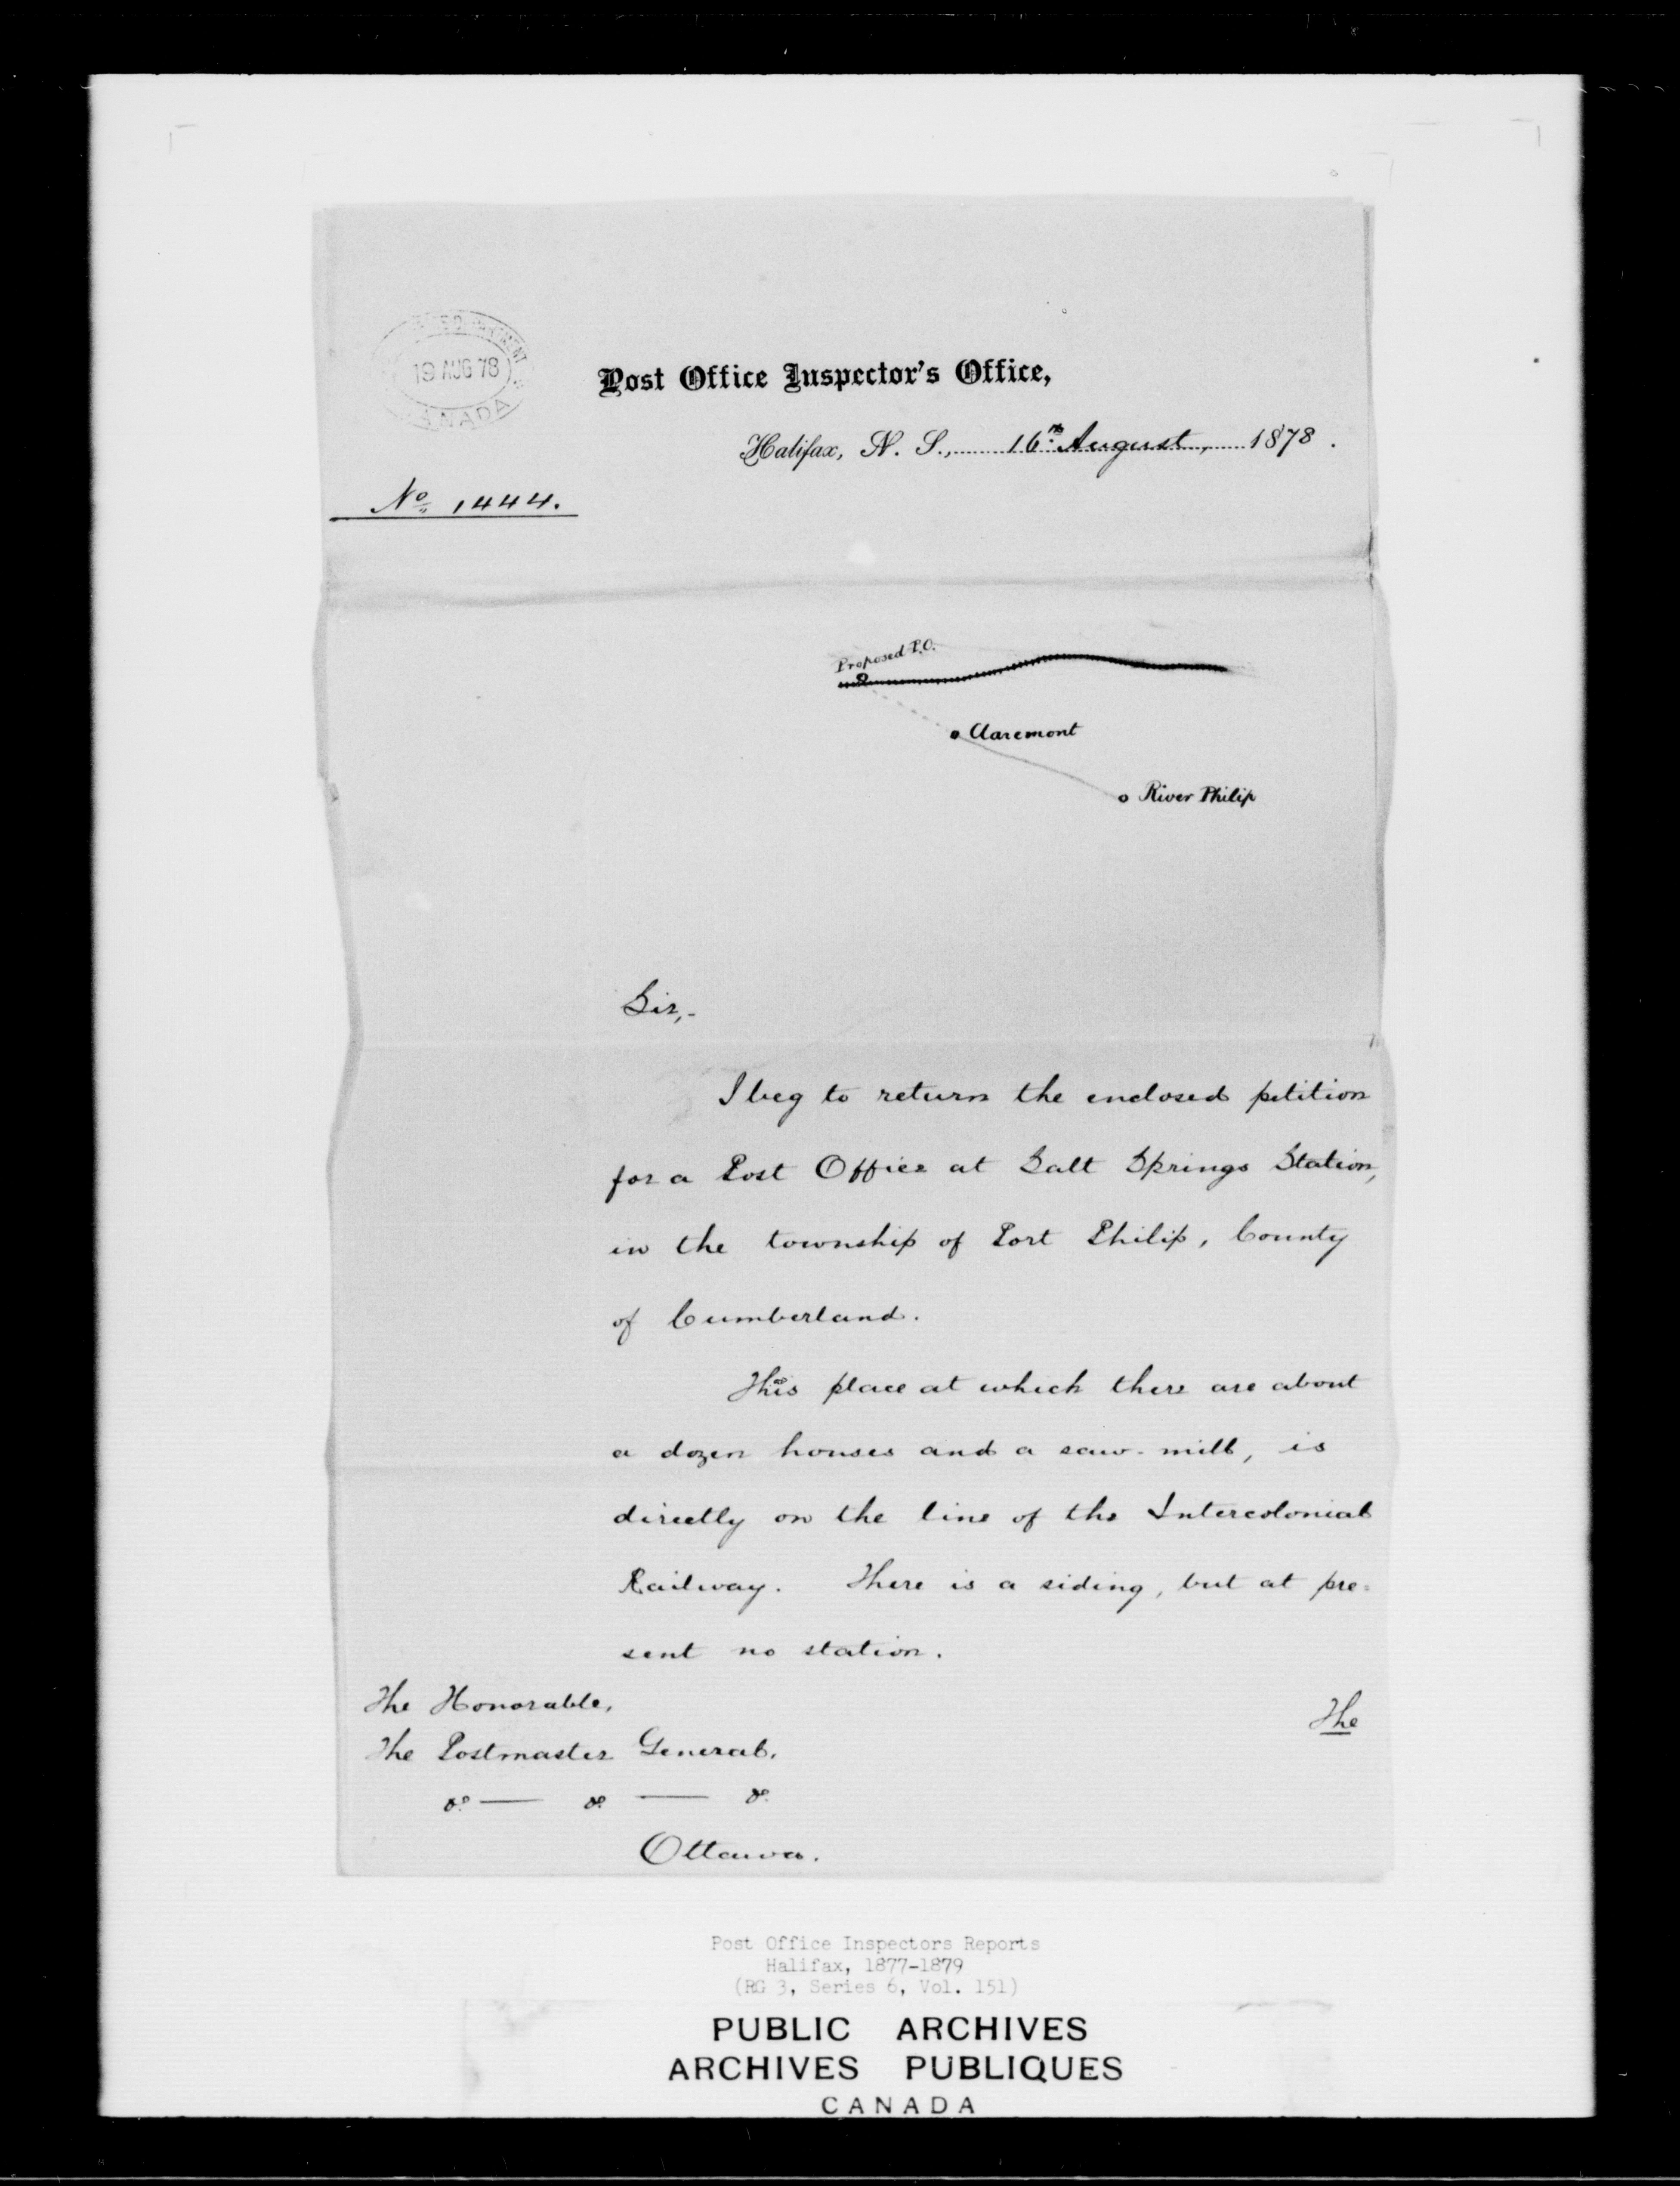 DEPARTMENT
19 AUG 78
CANADA
Post Office Inspector's Office,
Halifax, N. S., 16th August, 1878.
No 1444.
Proposed P.O.
Claremont
River Philip
Sir,-
I beg to return the enclosed petition
for a Post Office at Salt Springs Station,
in the township of Port Philip, County
of Cumberland.
This place at which there are about
a dozen houses and a saw-mill, is
directly on the line of the Intercolonial
Railway. There is a siding, but at pre=
sent no station.
The
The Honorable,
The Postmaster General,
&c — &c — &c
Ottawa.
Post Office Inspectors Reports
Halifax, 1877-1879
(RG 3, Series 6, Vol. 151)
PUBLIC ARCHIVES
ARCHIVES PUBLIQUES
CANADA